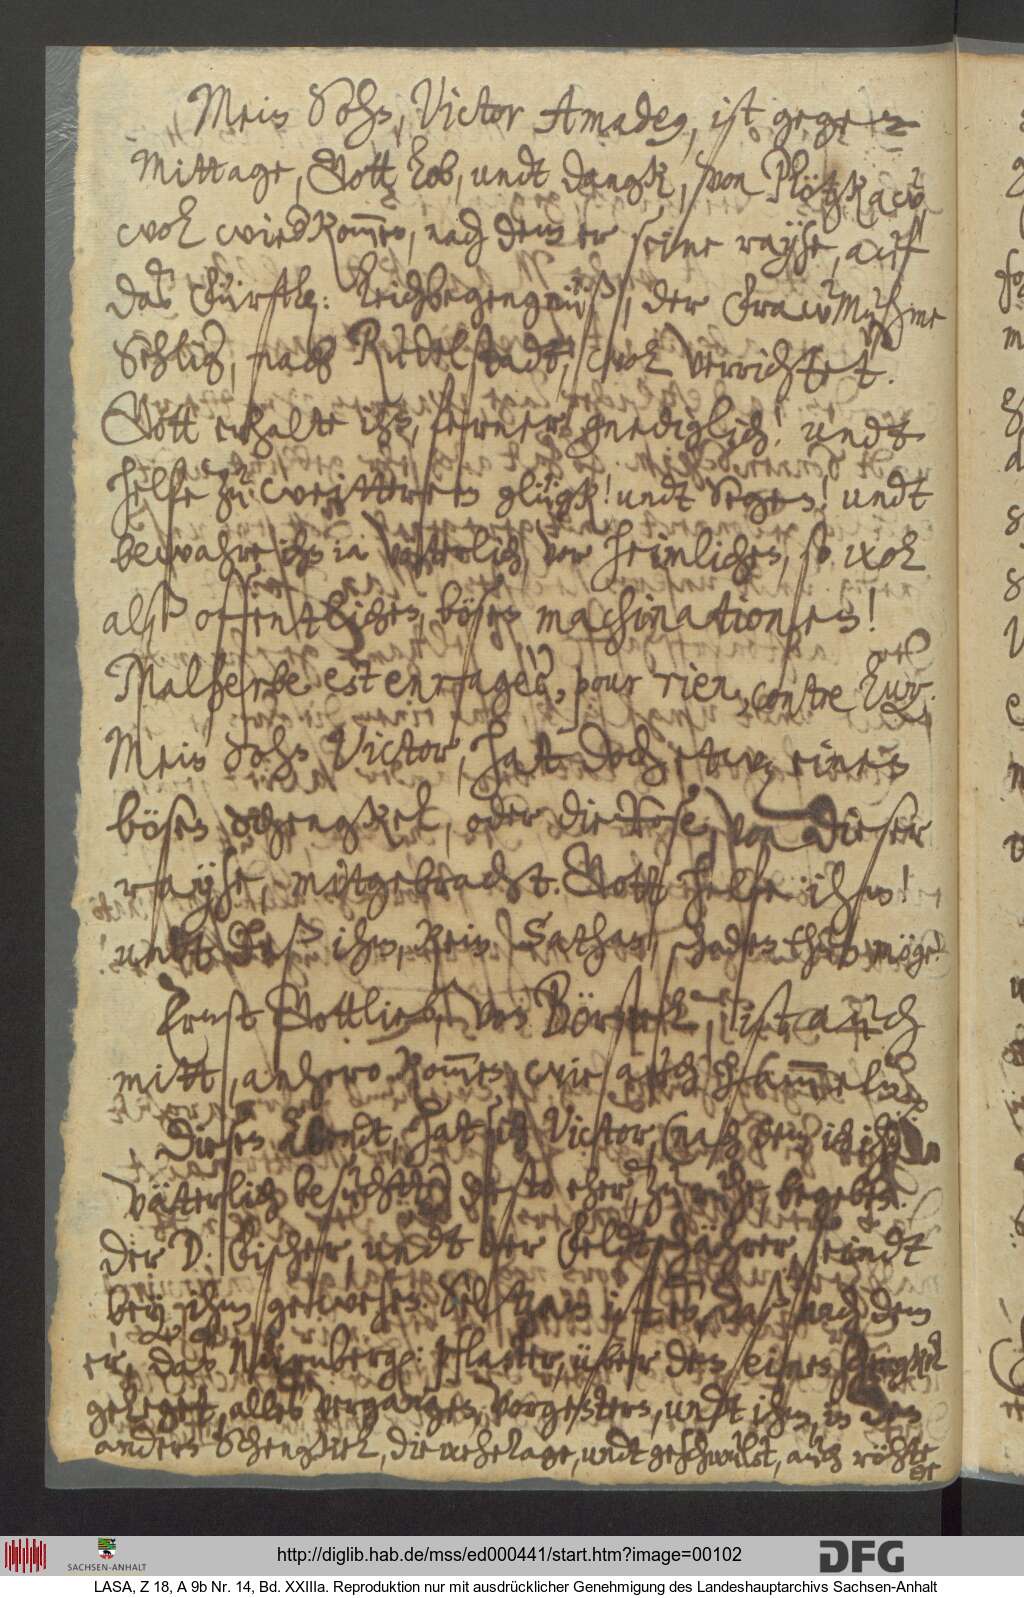 Mein Sohn, Victor Amadeus, ist gegen
Mittage, Gott lob, undt dangk, von Plötzkaw,
wol wiedkommen, nach dem er seine rayse, auf
das Fürstl: Leichbegengnüß, der Fraw Muhme
Sehlig, nach Rudelstadt, wol verrichtet.
Gott erhalte ihn, ferner gnediglich! undt
helfe zu weitterem glügk! undt Segen! undt
bewahre ihn vätterlich, vor heimlichen, so wol
alß offentlichen bösen machinationen!
Malherbe est enragèe, pour rien, contre luy.
Mein Sohn Victor, hat doch etwz einen
bösen schengkel, oder die Rose, von dieser
rayse, mitgebracht. Gott helfe ihm!
undt daß ihm, kein Sathan, schaden thun möge!
Ernst Gottlieb, von Börstel, ist auch
mitt, anhero kommen, wie auch
Diesen abendt, hat sich Victor, (nach dem ich ihn
vätterlich besucht) desto eher, zu ruhe, begeben.
Der D. Fischer undt der Feldtscherer, seindt
bey ihm gewesen. Seltzam ist es, daß nach dem
er, das Nürnbergl: pflaster, über den einen schengkel
geleget, alles vergangen, vorgestern, undt ihm, in den
andern Schengkel, die wehetage, undt geschwulst, auch röhte
http://diglib.hab.de/mss/ed000441/start.htm?image=00102
SACHSEN-ANHALT
DFG
LASA, Z 18, A 9b Nr. 14, Bd. XXIIIa. Reproduktion nur mit ausdrücklicher Genehmigung des Landeshauptarchivs Sachsen-Anhalt